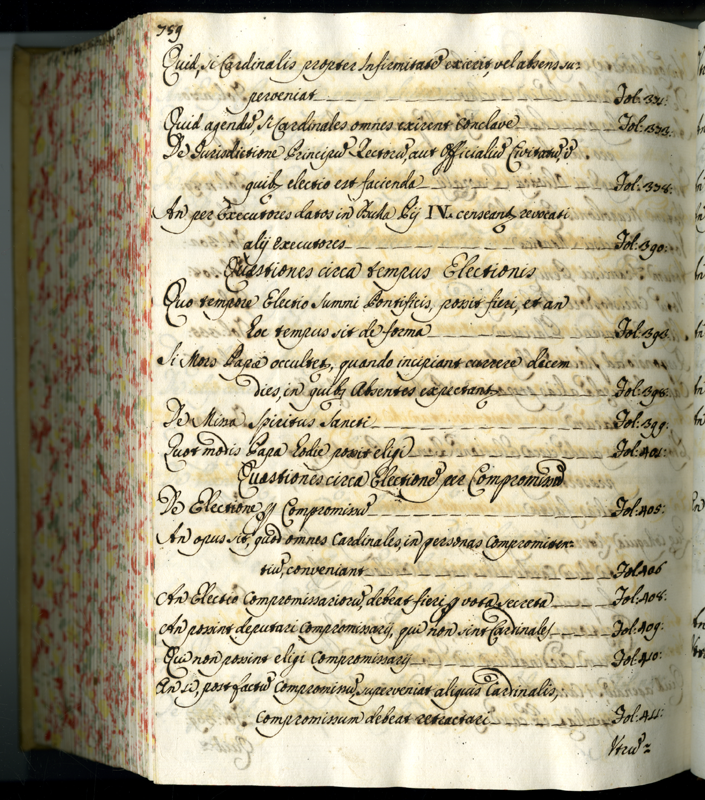 759
Quid, si Cardinalis propter Infirmitatē exierit, vel absens su-
perveniat Fol: 371:
Quid agendū si Cardinales omnes exirent Conclave Fol: 373:
De Jurisdictione Principū Rectorū, aut Officialiū Civitatū, ī
quib₉ electio est facienda Fol: 378:
An per Executores datos in Bulla Pij IV. censeant₂ revocati
alij executores Fol: 390:
Quæstiones circa tempus Electionis
Quo tempore Electio Summi Pontificis, possit fieri, et an
hoc tempus sit de forma Fol: 393:
Si Mors Papæ occultet₂, quando incipiant currere decem
dies, in quib₉ Absentes expectant₂ Fol: 398:
De Missa Spiritus Sancti Fol: 399:
Quot modis Papa hodie possit eligi Fol: 401:
Quæstiones circa Electionē per Compromissū
De Electione ꝑ Compromissū Fol: 405:
An opus sit, quod omnes Cardinales, in personas Compromitten-
tiū, conveniant Fol: 406
An Electio Compromissariorū, debeat fieri ꝑ vota secreta Fol: 408:
An possint deputari Compromissarij, qui non sint Cardinales Fol: 409:
Qui non possint eligi Compromissarij Fol: 410:
An si, post factū Compromissū, superveniat aliquis Cardinalis,
Compromissum debeat retractari Fol: 411:
Utrū =